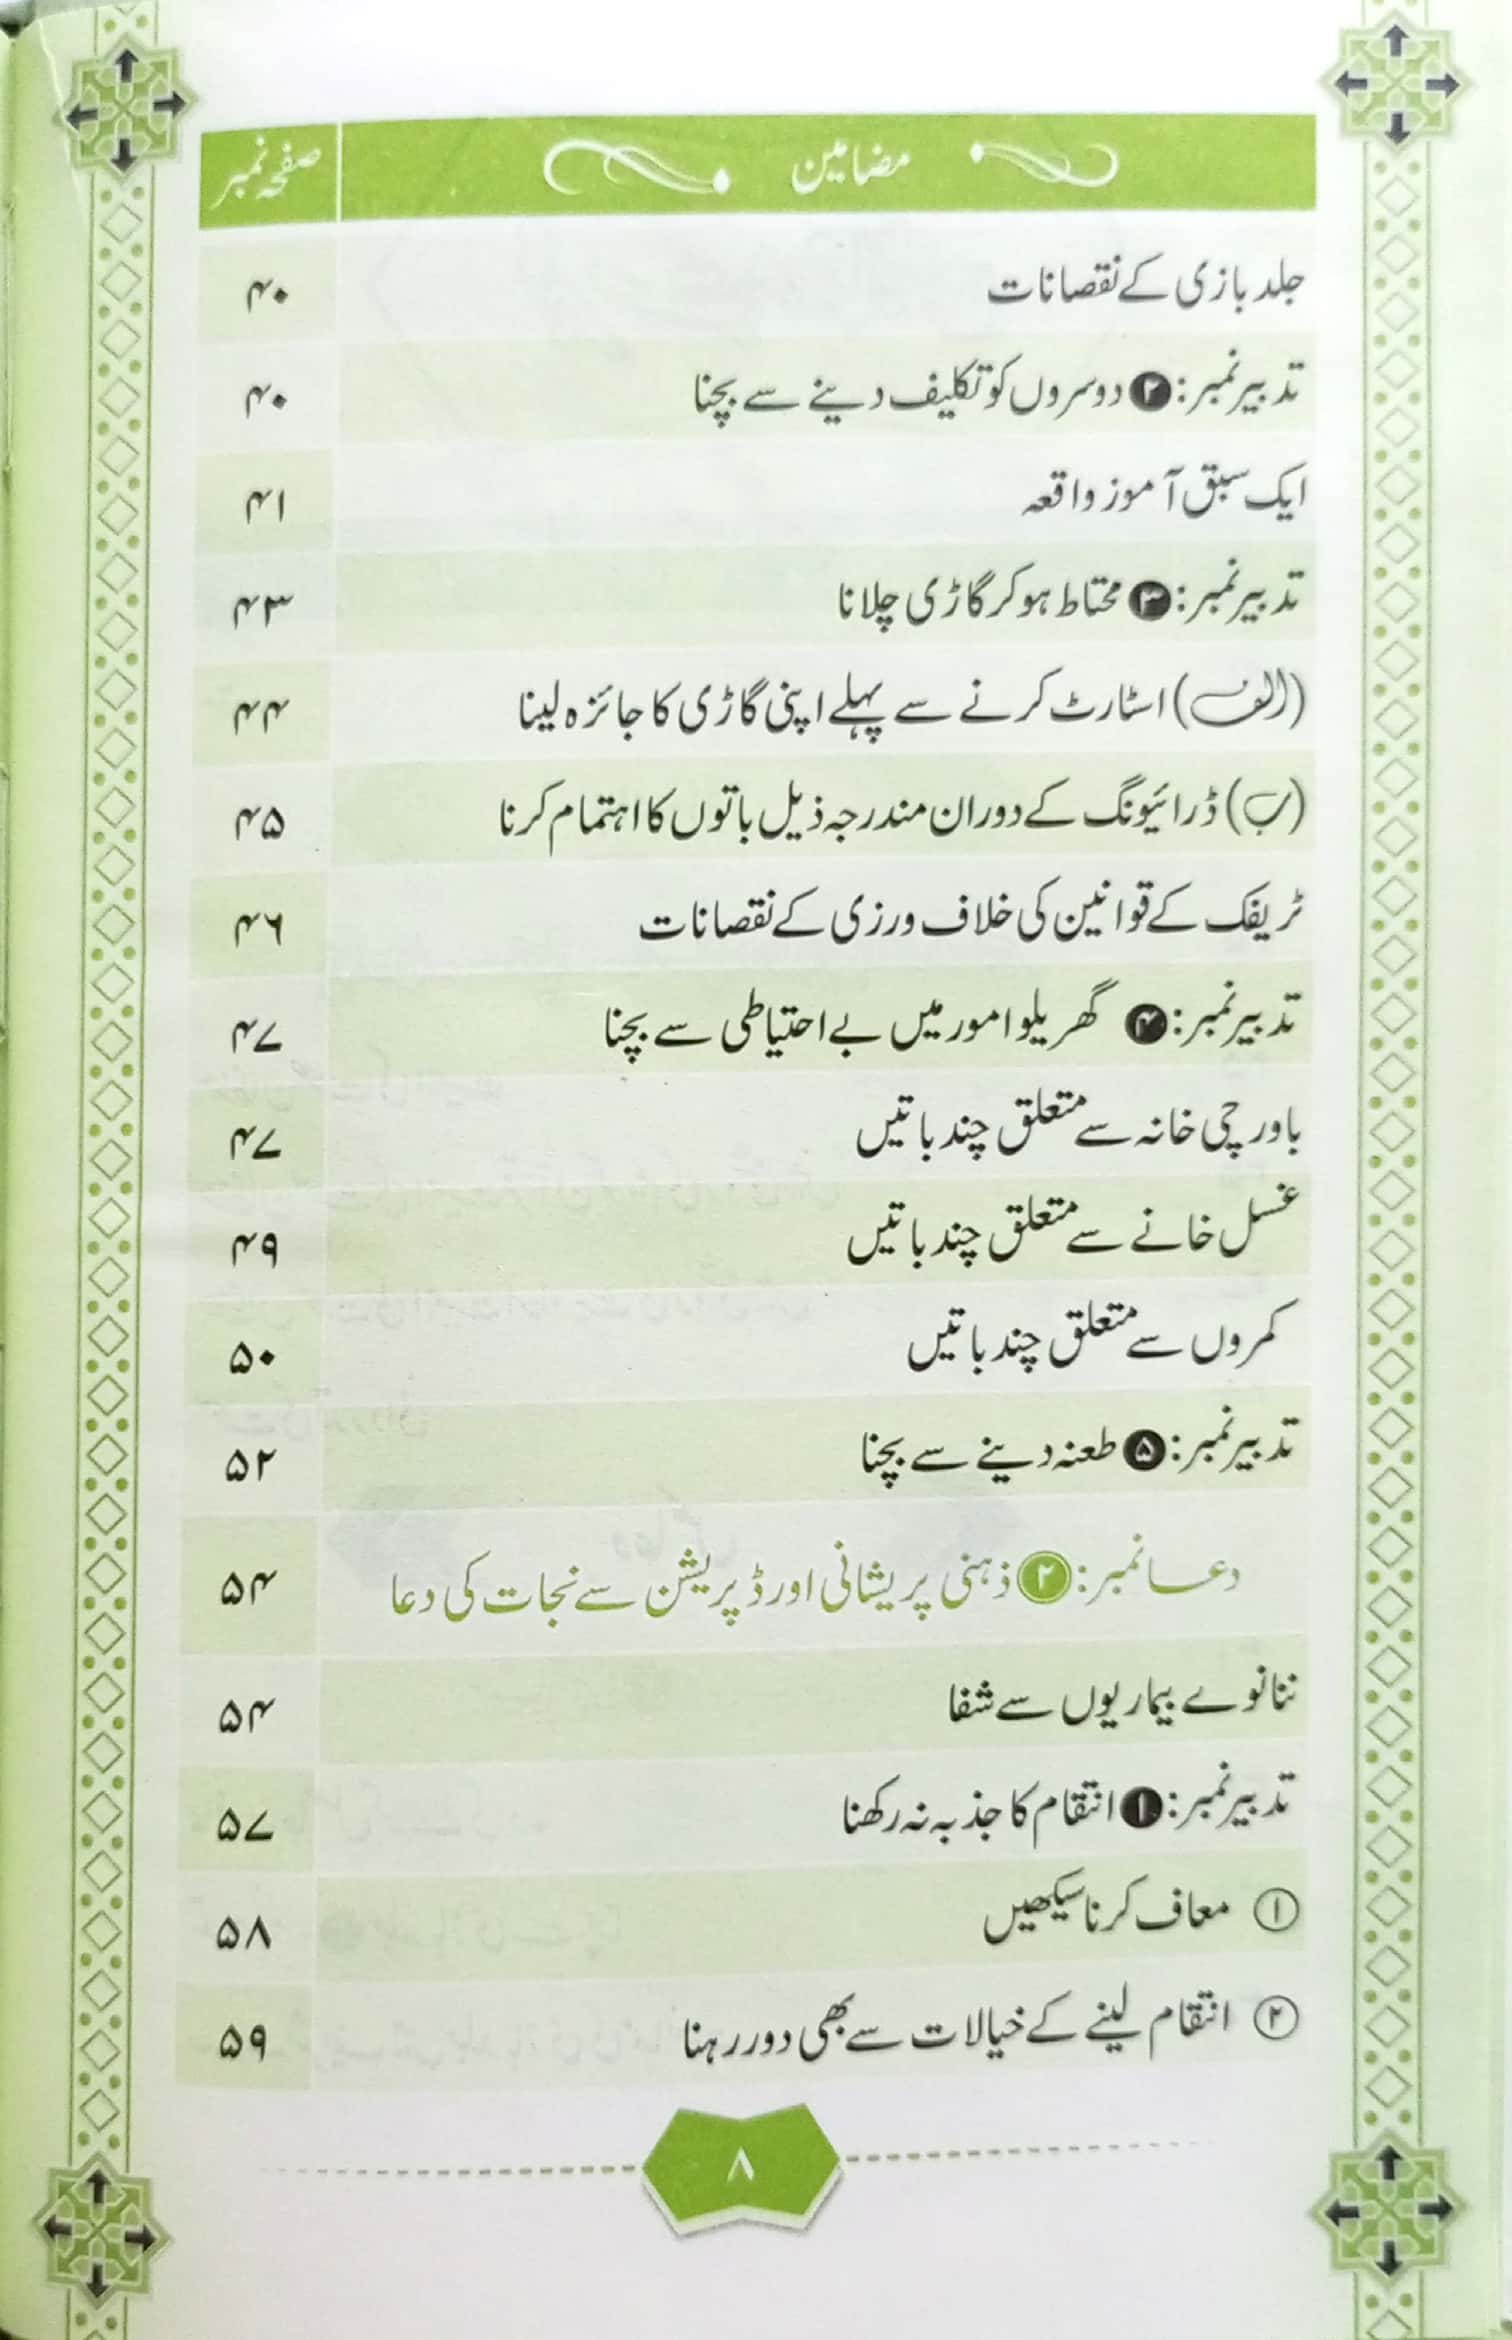 مضامین صفحہ نمبر
جلد بازی کے نقصانات ۴۰
تدبیر نمبر: ۲ دوسروں کو تکلیف دینے سے بچنا ۴۰
ایک سبق آموز واقعہ ۴۱
تدبیر نمبر: ۳ محتاط ہو کر گاڑی چلانا ۴۳
(الف) اسٹارٹ کرنے سے پہلے اپنی گاڑی کا جائزہ لینا ۴۴
(ب) ڈرائیونگ کے دوران مندرجہ ذیل باتوں کا اہتمام کرنا ۴۵
ٹریفک کے قوانین کی خلاف ورزی کے نقصانات ۴۶
تدبیر نمبر: ۴ گھریلو امور میں بے احتیاطی سے بچنا ۴۷
باورچی خانہ سے متعلق چند باتیں ۴۷
غسل خانے سے متعلق چند باتیں ۴۹
کمروں سے متعلق چند باتیں ۵۰
تدبیر نمبر: ۵ طعنہ دینے سے بچنا ۵۲
دعا نمبر: ۲ ذہنی پریشانی اور ڈپریشن سے نجات کی دعا ۵۴
ننانوے بیماریوں سے شفا ۵۴
تدبیر نمبر: ۱ انتقام کا جذبہ نہ رکھنا ۵۷
۱ معاف کرنا سیکھیں ۵۸
۲ انتقام لینے کے خیالات سے بھی دور رہنا ۵۹
۸